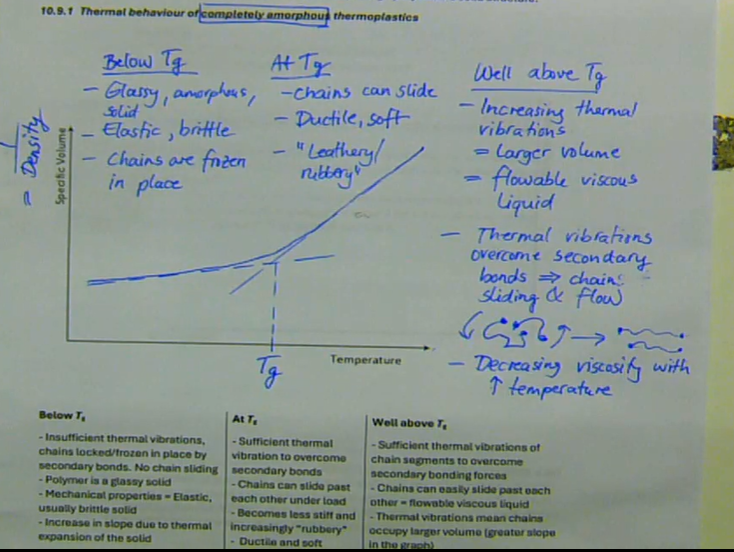 10.9.1 Thermal behaviour of completely amorphous thermoplastics
Below Tg
- Glassy, amorphous,
solid
- Elastic, brittle
- Chains are frozen
in place
At Tg
- Chains can slide
- Ductile, soft
- "Leathery/
rubbery"
Well above Tg
- Increasing thermal
vibrations
= Larger volume
= flowable viscous
liquid
- Thermal vibrations
overcome secondary
bonds ⇒ chain
sliding & flow
- Decreasing viscosity with
↑ temperature
1
= Density
Specific Volume
Tg
Temperature
Below Tg
- Insufficient thermal vibrations,
chains locked/frozen in place by
secondary bonds. No chain sliding
- Polymer is a glassy solid
- Mechanical properties = Elastic,
usually brittle solid
- Increase in slope due to thermal
expansion of the solid
At Tg
- Sufficient thermal
vibration to overcome
secondary bonds
- Chains can slide past
each other under load
- Becomes less stiff and
increasingly "rubbery"
- Ductile and soft
Well above Tg
- Sufficient thermal vibrations of
chain segments to overcome
secondary bonding forces
- Chains can easily slide past each
other = flowable viscous liquid
- Thermal vibrations mean chains
occupy larger volume (greater slope
in the graph)